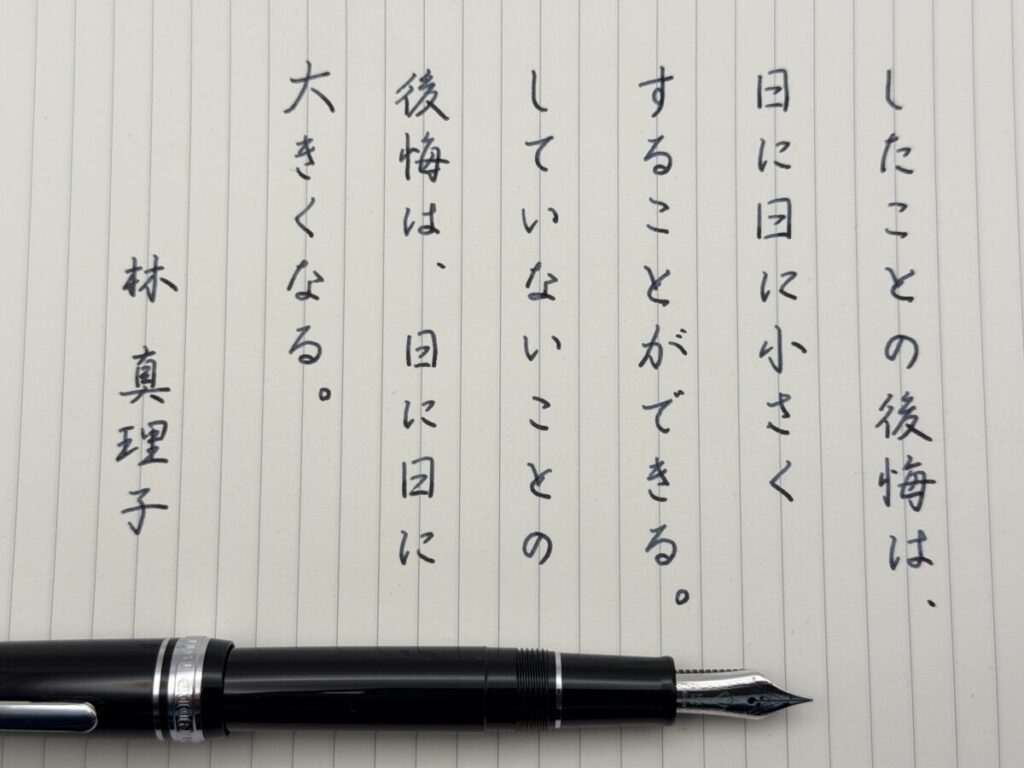 したことの後悔は、
日に日に小さく
することができる。
していないことの
後悔は、日に日に
大きくなる。
林 真理子